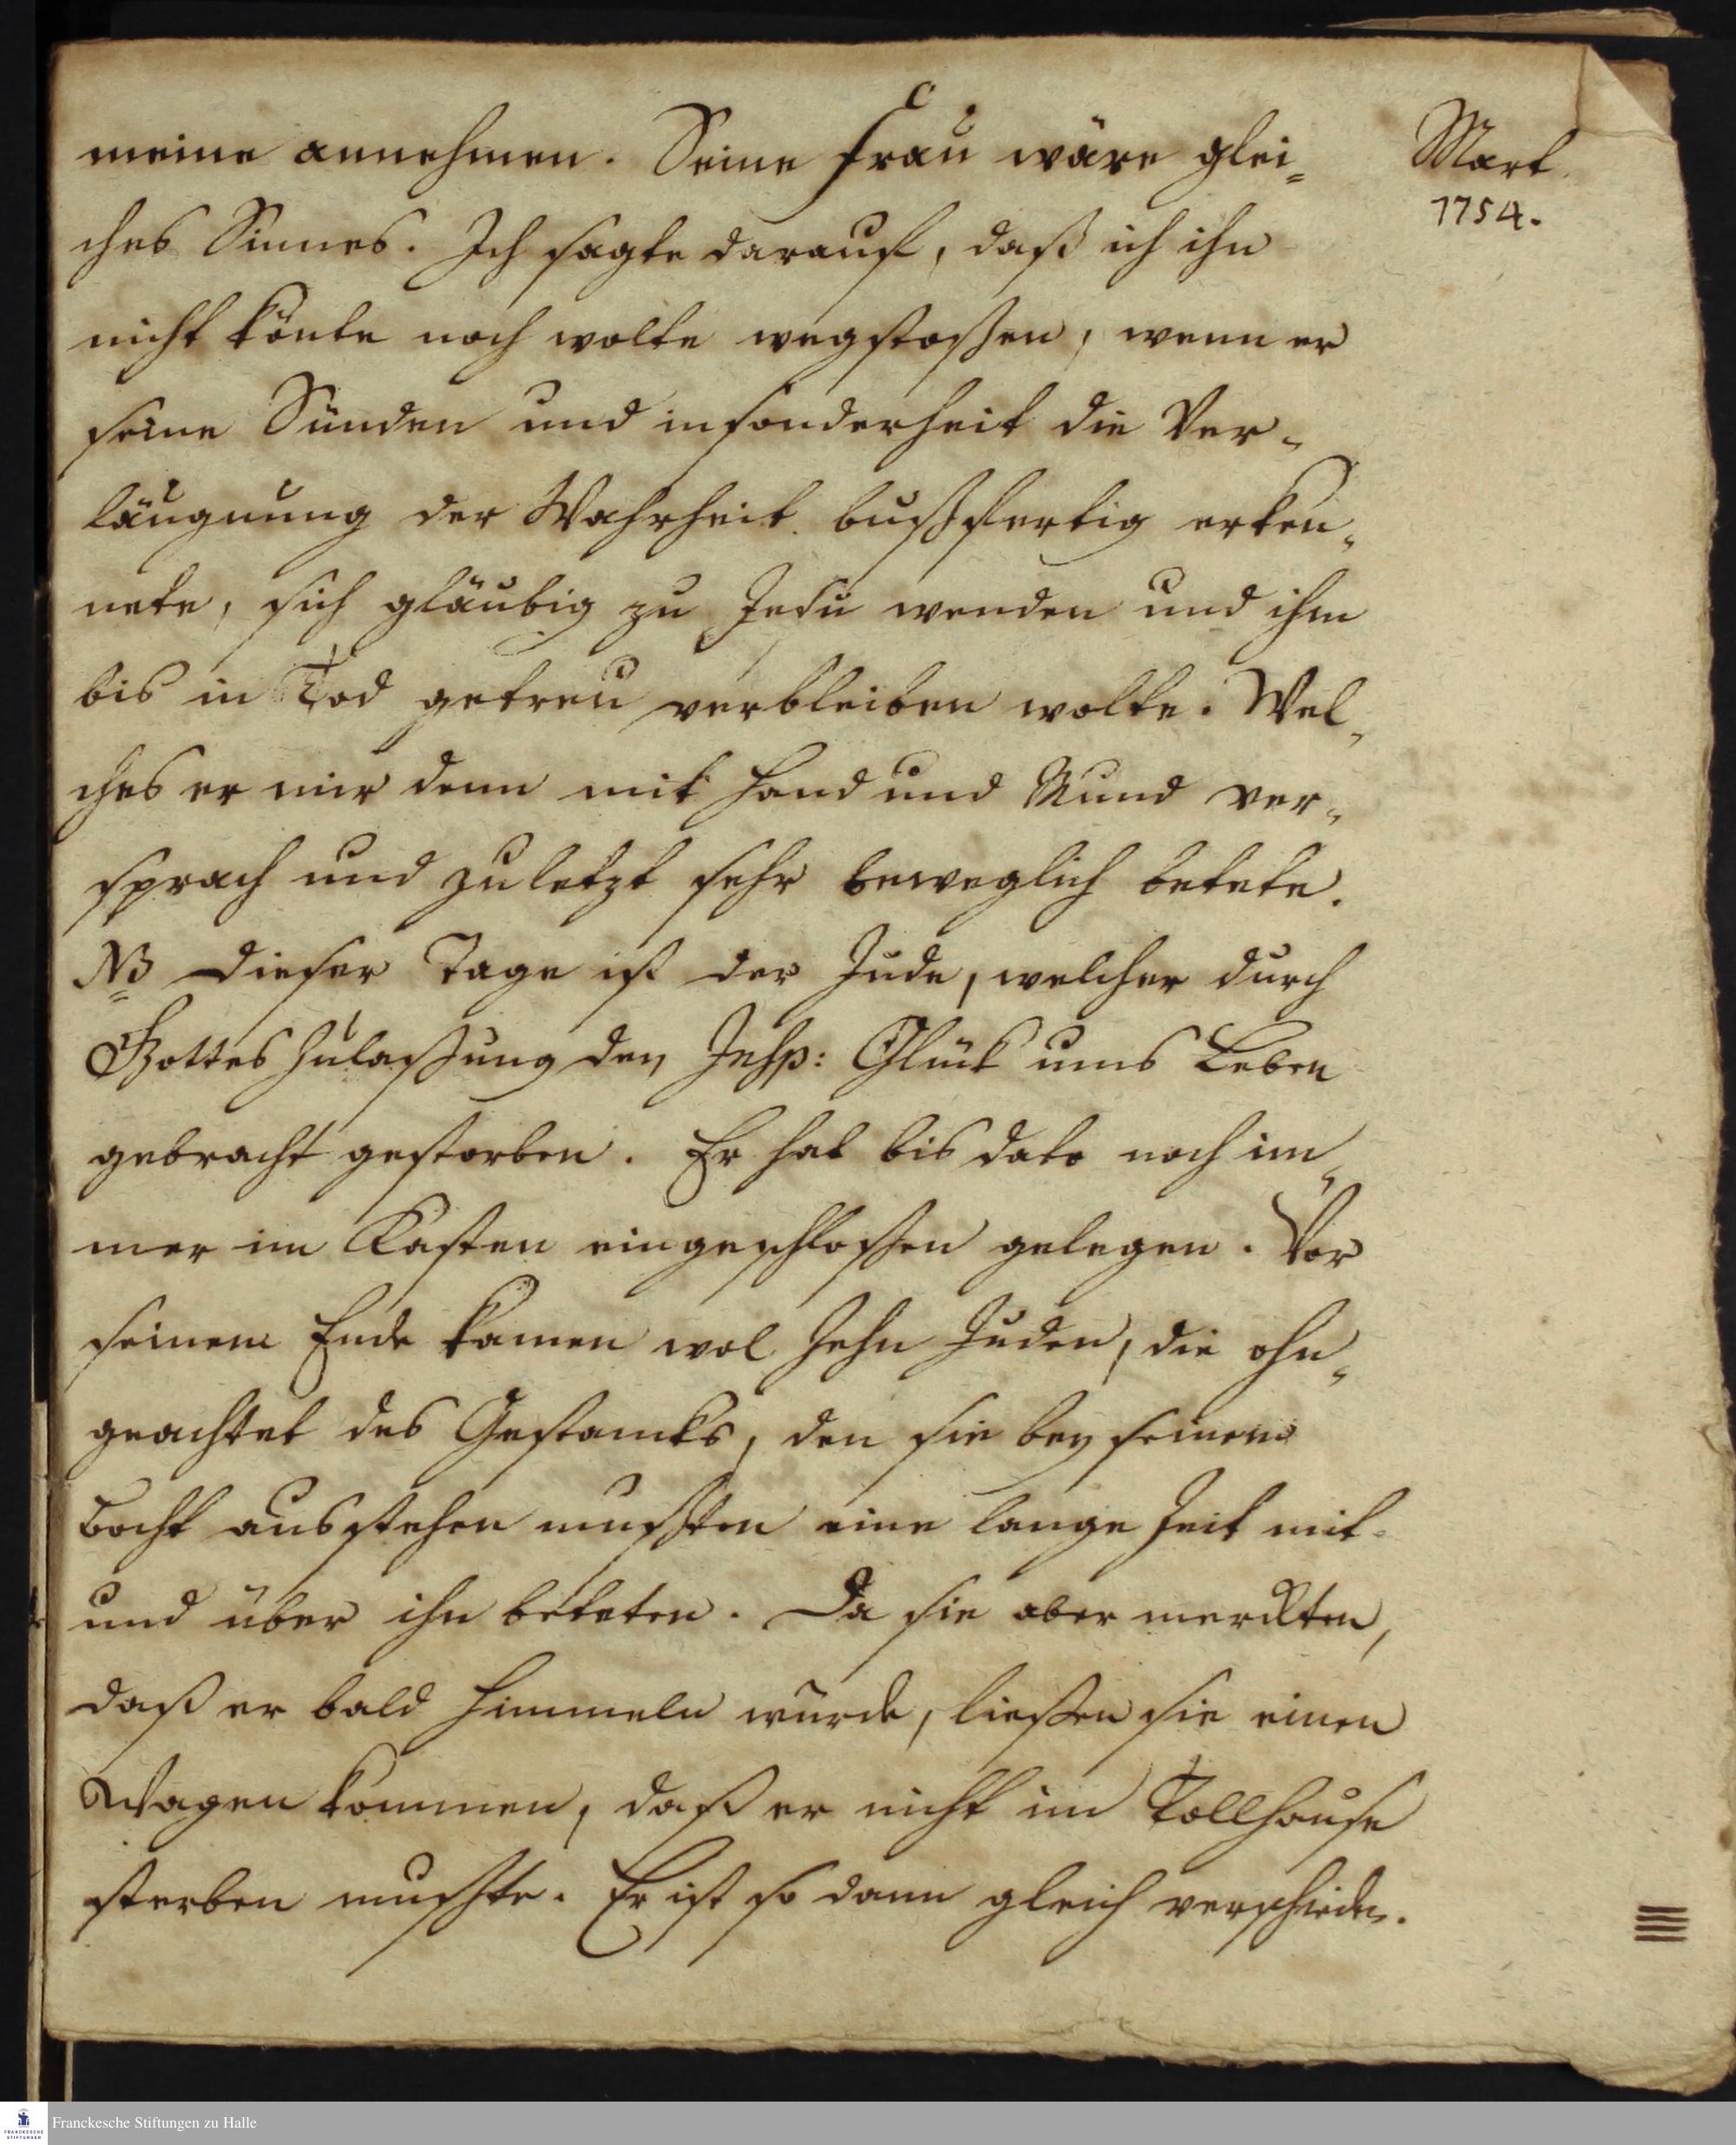 meine annehmen. Seine Frau wäre glei=
ches Sinnes. Ich sagte darauf, daß ich ihn
nicht könte noch wolte wegstoßen, wenn er
seine Sünden und insonderheit die Ver-
läugnung der Wahrheit bußfertig erken-
nete, sich gläubig zu Jesu wenden und ihm
bis in Tod getreu verbleiben wolte. Wel-
ches er mir denn mit Hand und Mund ver-
sprach und zuletzt sehr beweglich betete.
NB Dieser Tage ist der Jude, welcher durch
Gottes Zulaßung den Insp: Glück ums Leben
gebracht gestorben. Er hat bis dato noch im-
mer im Kasten eingeschloßen gelegen. Vor
seinem Ende kamen wol Zehn Juden, die ohn-
geachtet des Gestancks, den sie bey seinem
Bocht ausstehen mußten eine lange Zeit mit-
und über ihn beteten. Da sie aber merckten,
daß er bald himmeln würde, ließen sie einen
Wagen kommen, daß er nicht im Tollhause
sterben mußte. Er ist so dann gleich verschieden.
Mart.
1754.
Franckesche Stiftungen zu Halle
FRANCKESCHE
STIFTUNGEN